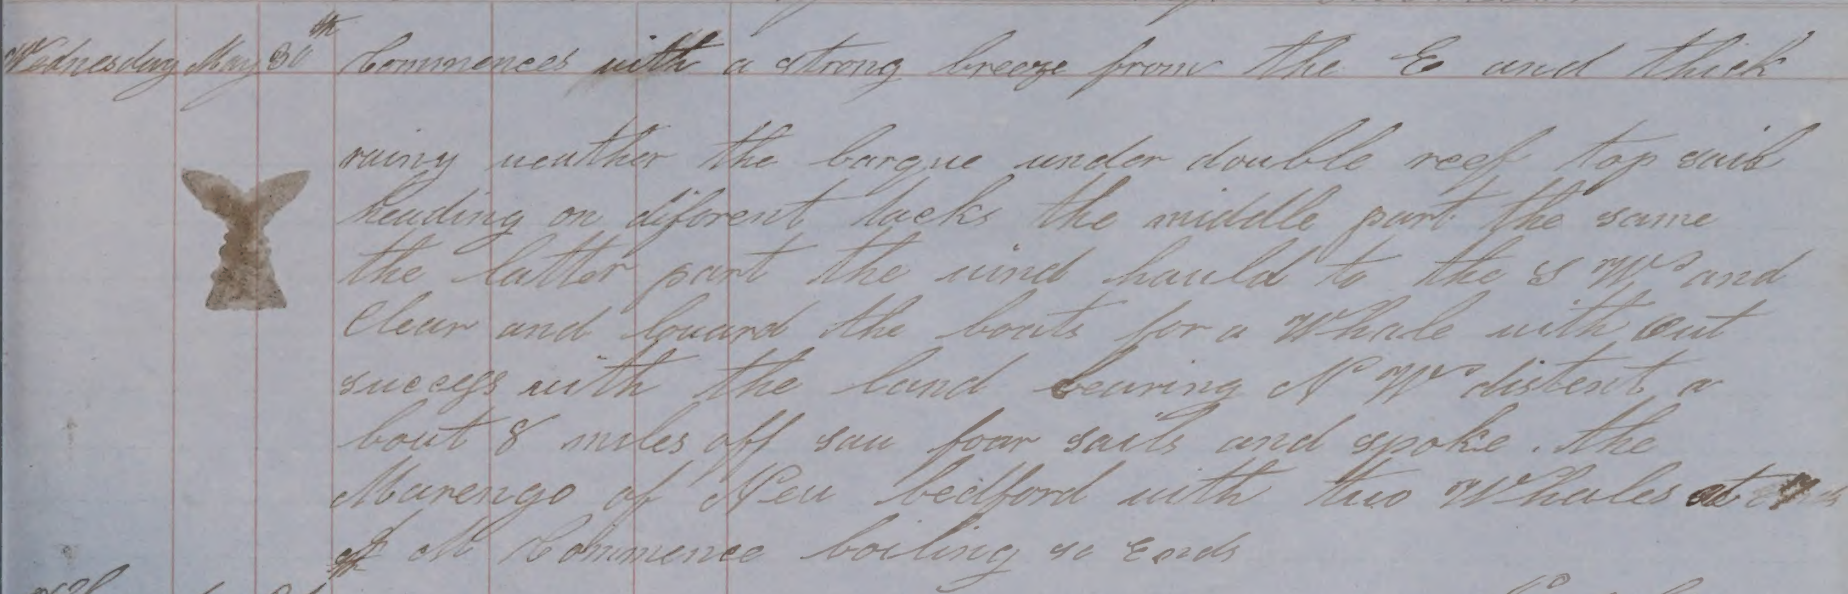 Wednesday May 30th Commences with a strong breeze from the E and thick
rainy weather the barque under double reef top sails
heading on diferent tacks the middle part the same
the latter part the wind hauld to the S W and
Clear and louard the boats for a Whale with out
success with the land bearing N W distent a
bout 8 miles off saw foar sails and spoke. the
Marengo of New bedford with two Whales at
M Commence boiling so Ends